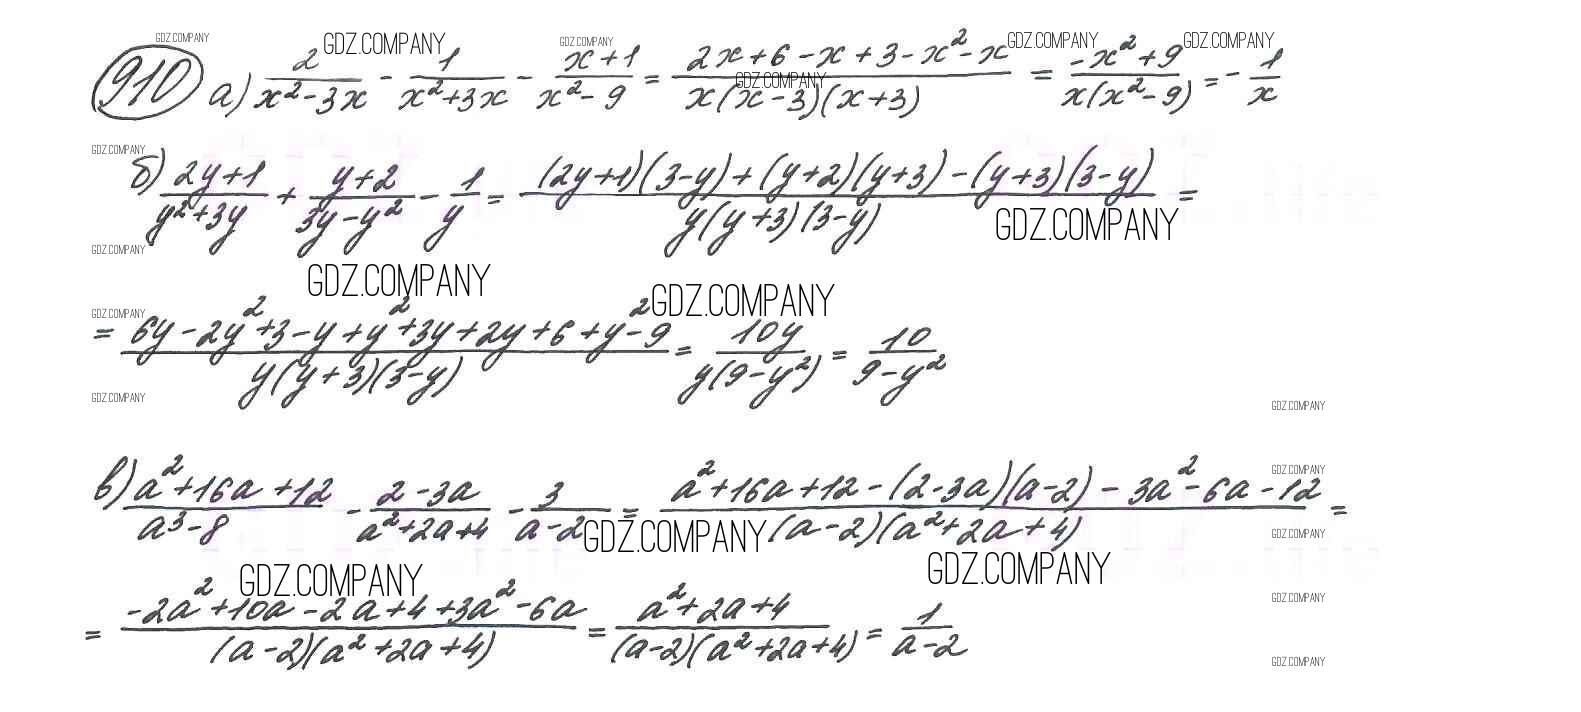 GDZ.COMPANY GDZ.COMPANY GDZ.COMPANY GDZ.COMPANY GDZ.COMPANY
910 а) 2/(x²-3x) - 1/(x²+3x) - (x+1)/(x²-9) = (2x+6-x+3-x²-x)/(x(x-3)(x+3)) = (-x²+9)/(x(x²-9)) = -1/x
GDZ.COMPANY
GDZ.COMPANY
б) (2y+1)/(y²+3y) + (y+2)/(3y-y²) - 1/y = ((2y+1)(3-y)+(y+2)(y+3)-(y+3)(3-y))/(y(y+3)(3-y)) =
GDZ.COMPANY
GDZ.COMPANY
GDZ.COMPANY GDZ.COMPANY
GDZ.COMPANY
= (6y-2y²+3-y+y²+3y+2y+6+y²-9)/(y(y+3)(3-y)) = 10y/(y(9-y²)) = 10/(9-y²)
GDZ.COMPANY GDZ.COMPANY
GDZ.COMPANY
в) (a²+16a+12)/(a³-8) - (2-3a)/(a²+2a+4) - 3/(a-2) = (a²+16a+12-(2-3a)(a-2)-3a²-6a-12)/((a-2)(a²+2a+4)) =
GDZ.COMPANY GDZ.COMPANY
GDZ.COMPANY GDZ.COMPANY
GDZ.COMPANY
= (-2a²+10a-2a+4+3a²-6a)/((a-2)(a²+2a+4)) = (a²+2a+4)/((a-2)(a²+2a+4)) = 1/(a-2)
GDZ.COMPANY